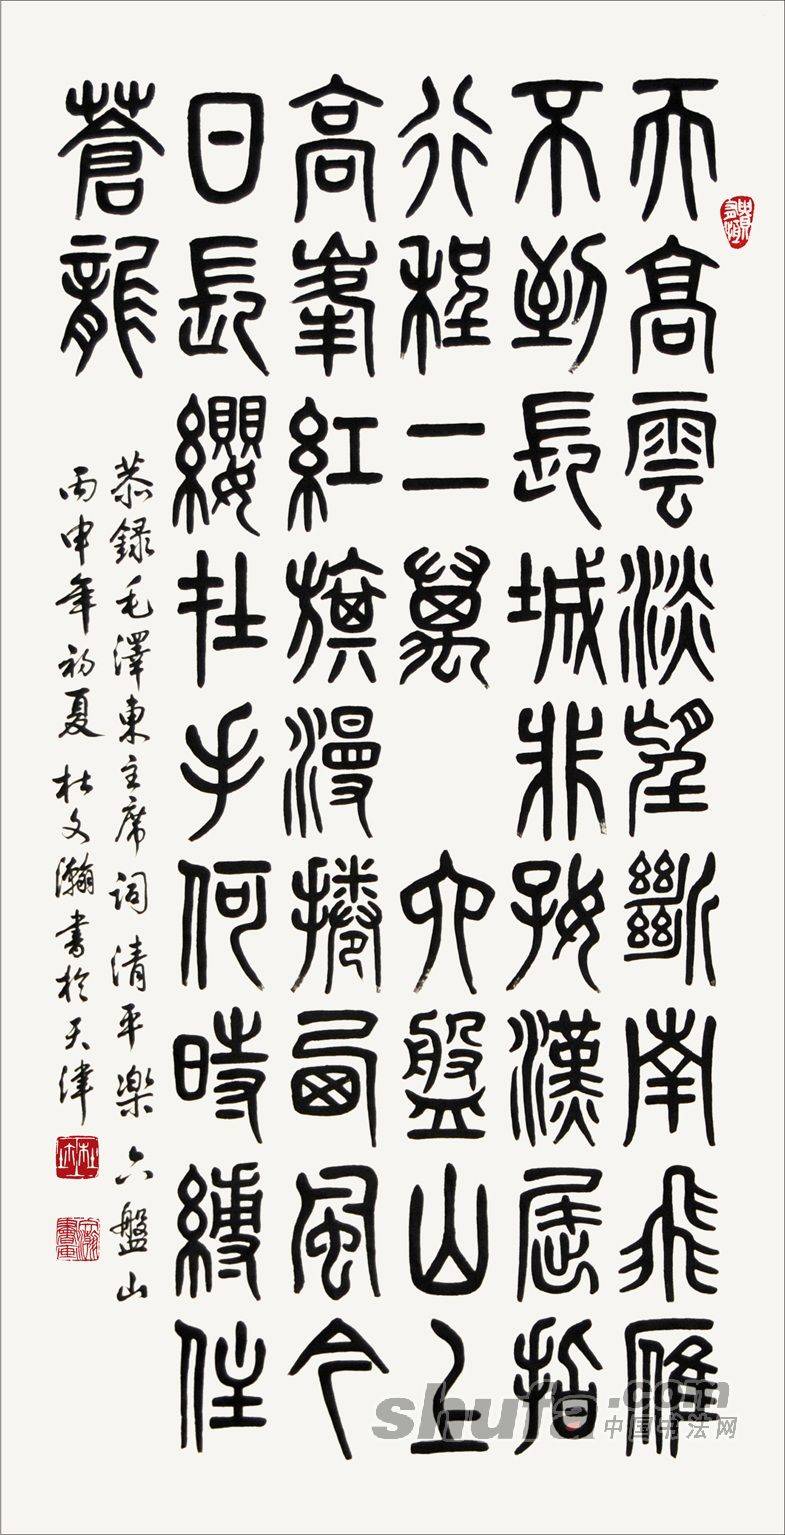 天高雲淡望斷南飛雁
不到長城非好漢屈指
行程二萬 六盤山上
高峯紅旗漫捲西風今
日長纓在手何時縛住
蒼龍
恭錄毛澤東主席詞清平樂 六盤山
丙申年初夏 杜文瀚書於天津
shufa.com
中国书法网